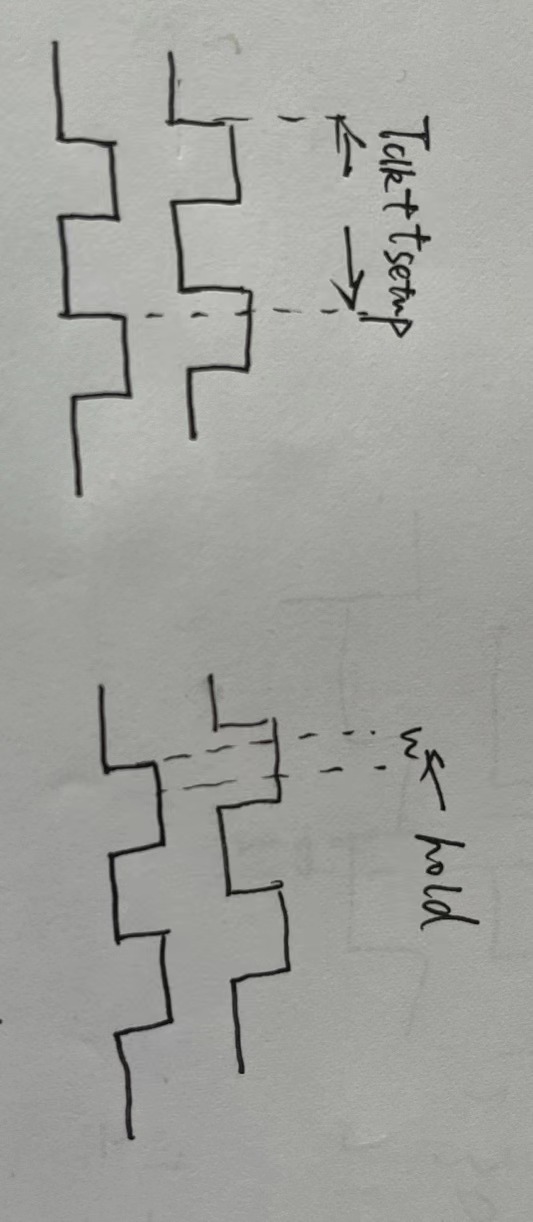 Tclk + tsetup
hold